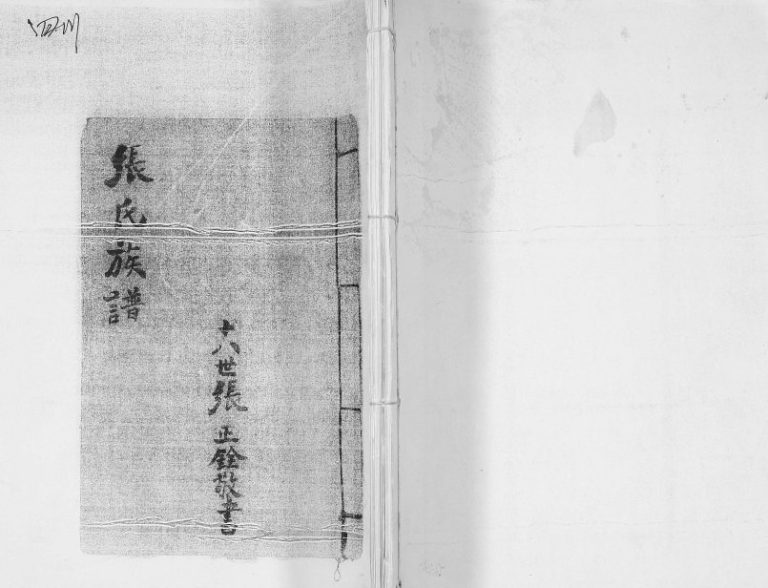 四川
張氏族譜
十八世張正銓敬書